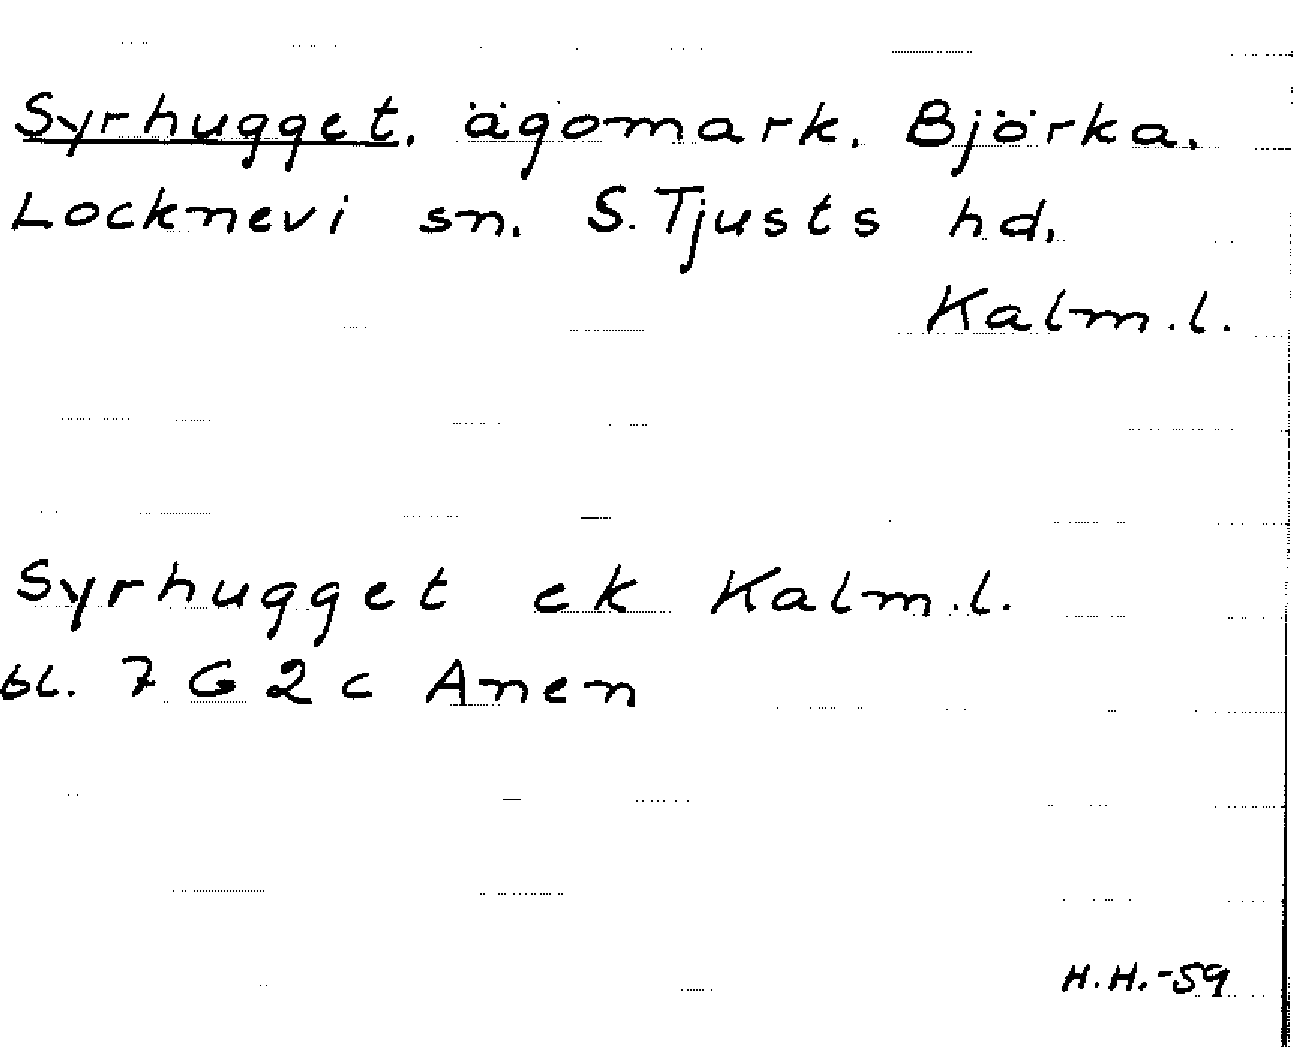 Syrhugget. ägomark. Björka.
Locknevi sn. S. Tjusts hd.
Kalm. l.
Syrhugget ek Kalm. l.
bl. 7 G 2 c Anen
H.H.-59